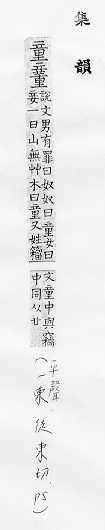 集韻
童
說文男有罪曰奴奴曰童女曰
妾一曰山無艸木曰童又姓籀
文童中與竊
中同从廿
(平聲．一東．徒東切．P5)